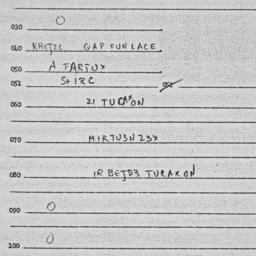 030 0
040 KRETZC GAP FUNLACE
050 A FARTUX
051 StIRC 052
060 21 TUCAXON
070 MIRTUSN23X
080 1R BEJD3 TUCAXON
090 0
100 0